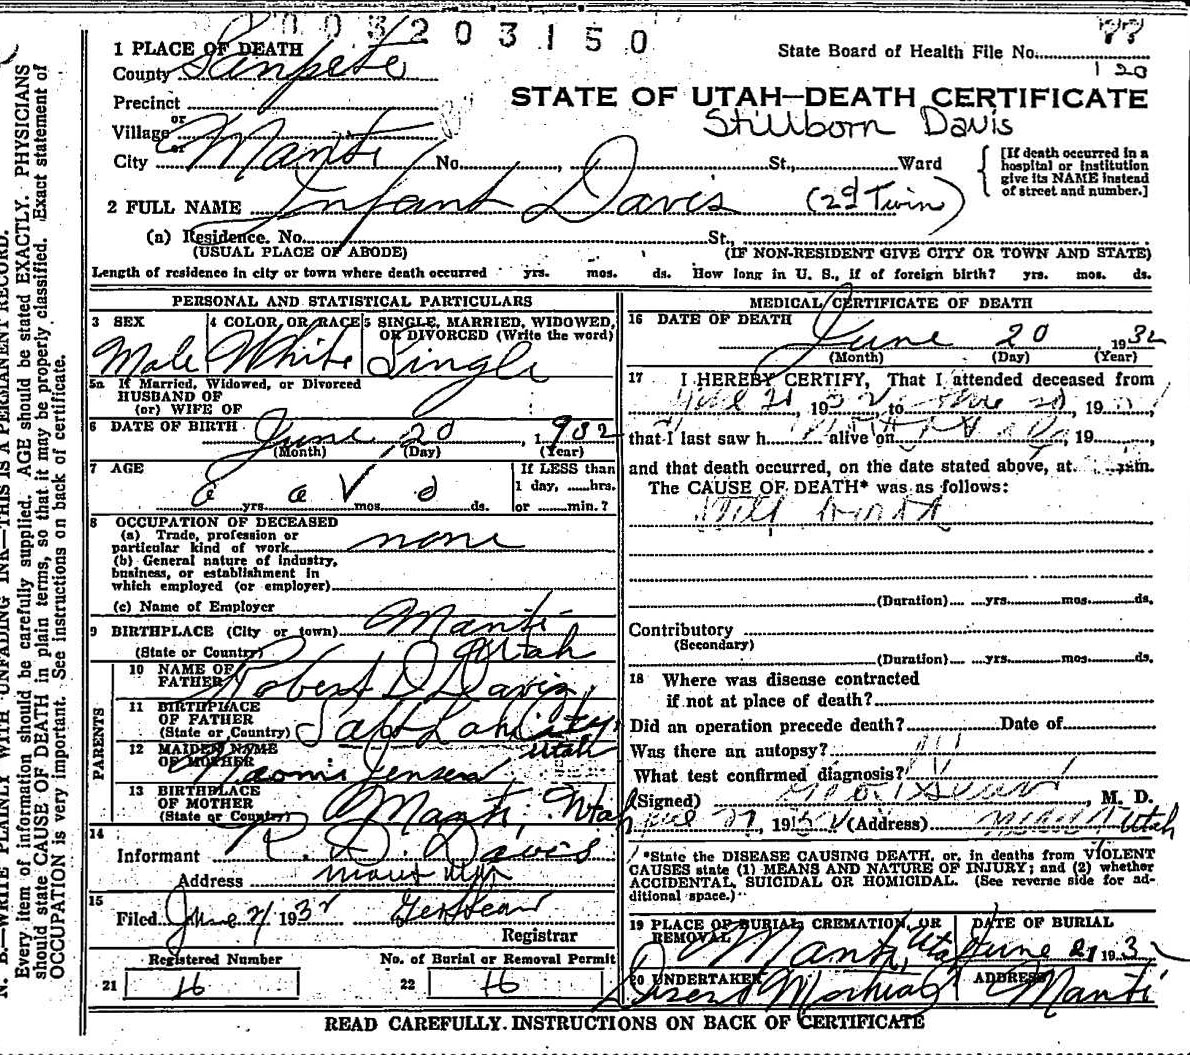 003203150
State Board of Health File No. 77
120
1 PLACE OF DEATH
County Sanpete
Precinct
or
Village
or
City Manti No. , St., Ward
STATE OF UTAH—DEATH CERTIFICATE
Stillborn Davis
[If death occurred in a
hospital or institution
give its NAME instead
of street and number.]
2 FULL NAME Infant Davis (2d Twin)
(a) Residence. No. St.,
(USUAL PLACE OF ABODE) (IF NON-RESIDENT GIVE CITY OR TOWN AND STATE)
Length of residence in city or town where death occurred yrs. mos. ds. How long in U. S., if of foreign birth? yrs. mos. ds.
PERSONAL AND STATISTICAL PARTICULARS
3 SEX
Male
4 COLOR OR RACE
White
5 SINGLE, MARRIED, WIDOWED,
OR DIVORCED (Write the word)
Single
5a If Married, Widowed, or Divorced
HUSBAND OF
(or) WIFE OF
6 DATE OF BIRTH June 20, 1932
(Month) (Day) (Year)
7 AGE
yrs. mos. ds.
If LESS than
1 day, hrs.
or min.?
8 OCCUPATION OF DECEASED
(a) Trade, profession or
particular kind of work none
(b) General nature of industry,
business, or establishment in
which employed (or employer)
(c) Name of Employer
9 BIRTHPLACE (City or town) Manti
(State or Country) Utah
PARENTS
10 NAME OF
FATHER Robert D Davis
11 BIRTHPLACE
OF FATHER
(State or Country) Salt Lake City,
Utah
12 MAIDEN NAME
OF MOTHER
Naomi Jensen
13 BIRTHPLACE
OF MOTHER
(State or Country) Manti, Utah
14
Informant R. D. Davis
Address Manti Utah
15
Filed June 21 1932
Registrar
Registered Number
21 16
No. of Burial or Removal Permit
22 16
MEDICAL CERTIFICATE OF DEATH
16 DATE OF DEATH
June 20 1932
(Month) (Day) (Year)
17 I HEREBY CERTIFY, That I attended deceased from
June 20, 1932, to June 20, 19
that I last saw h alive on , 19 ,
and that death occurred, on the date stated above, at m.
The CAUSE OF DEATH* was as follows:
Still birth
(Duration) yrs. mos. ds.
Contributory
(Secondary)
(Duration) yrs. mos. ds.
18 Where was disease contracted
if not at place of death?
Did an operation precede death? Date of
Was there an autopsy?
What test confirmed diagnosis?
(Signed) , M. D.
, 1932 (Address) Manti Utah
*State the DISEASE CAUSING DEATH, or, in deaths from VIOLENT
CAUSES state (1) MEANS AND NATURE OF INJURY; and (2) whether
ACCIDENTAL, SUICIDAL OR HOMICIDAL. (See reverse side for ad-
ditional space.)
19 PLACE OF BURIAL, CREMATION, OR
REMOVAL
Manti, Utah
DATE OF BURIAL
June 21 1932
20 UNDERTAKER
ADDRESS
Manti
READ CAREFULLY INSTRUCTIONS ON BACK OF CERTIFICATE
N. B.—WRITE PLAINLY WITH UNFADING INK—THIS IS A PERMANENT RECORD.
Every item of information should be carefully supplied. AGE should be stated EXACTLY. PHYSICIANS
should state CAUSE OF DEATH in plain terms, so that it may be properly classified. Exact statement of
OCCUPATION is very important. See instructions on back of certificate.